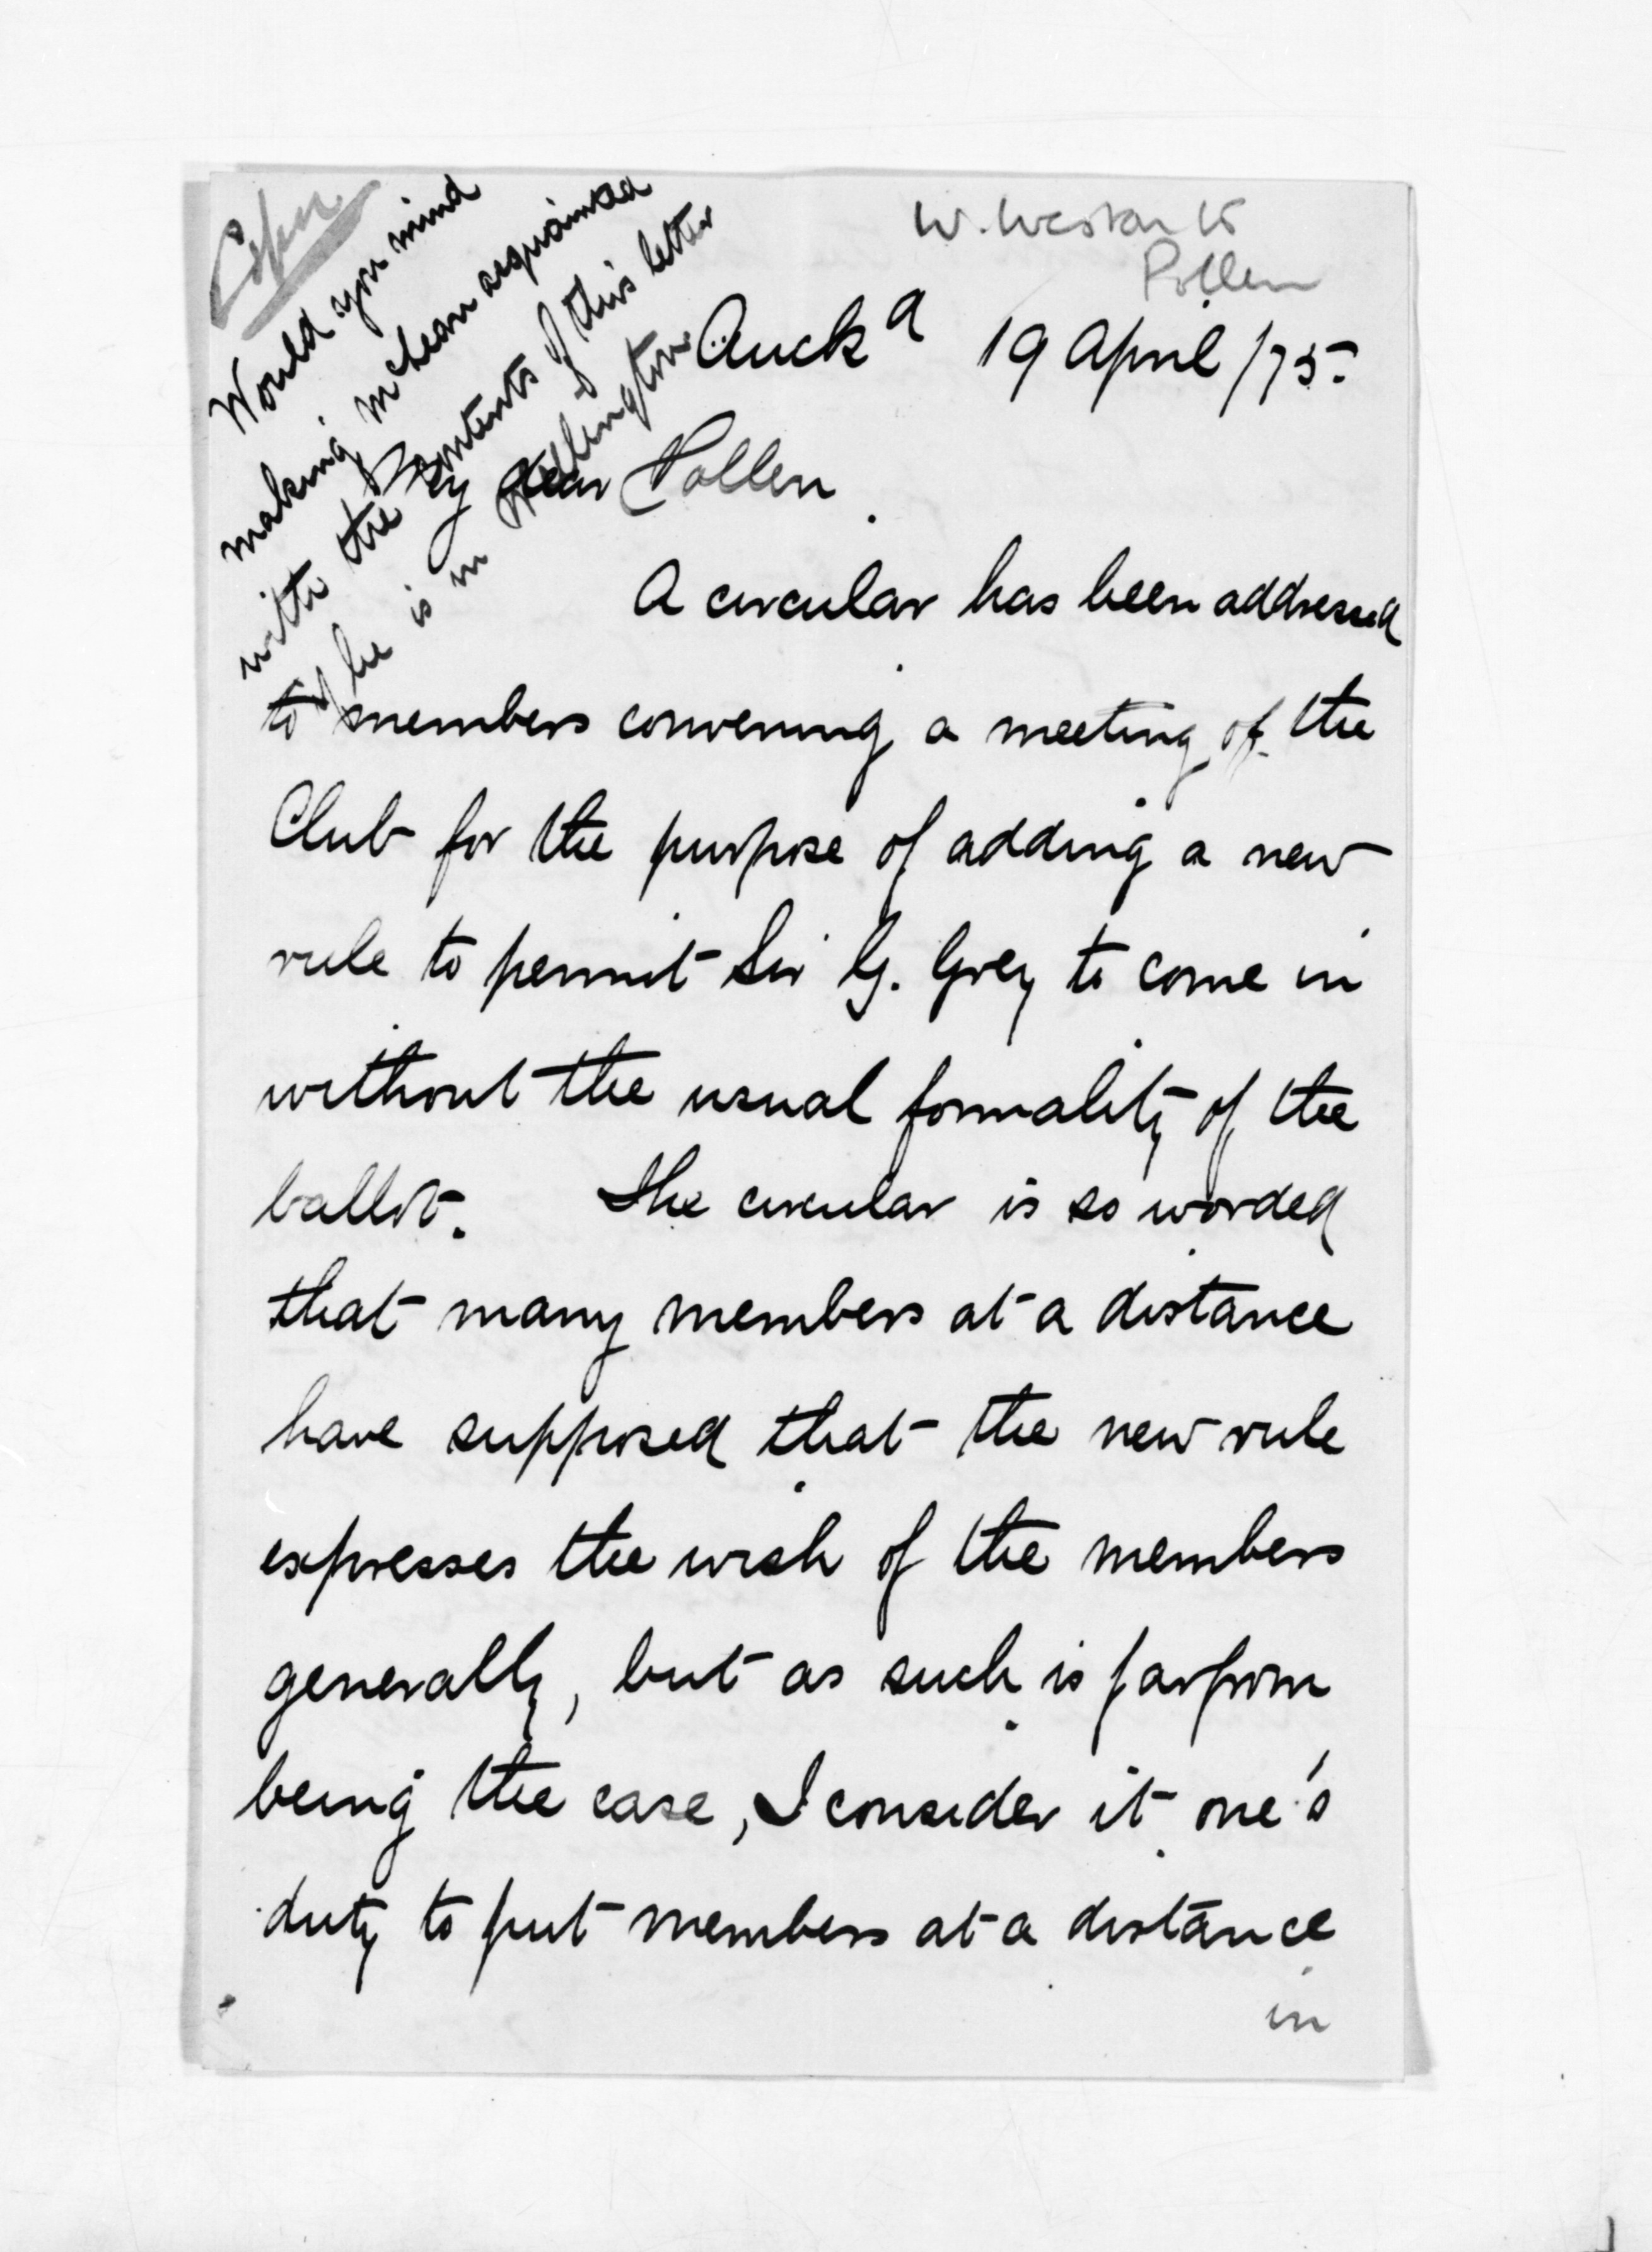 Copy
Would you mind
making McLean acquainted
with the contents of this letter
if he is in Wellington
W. Weston to
Pollen
Auckd 19 April /75.
My dear Pollen
A circular has been addressed
to members convening a meeting of the
Club for the purpose of adding a new
rule to permit Sir G. Grey to come in
without the usual formality of the
ballot. The circular is so worded
that many members at a distance
have supposed that the new rule
expresses the wish of the members
generally, but as such is far from
being the case, I consider it one's
duty to put members at a distance
in